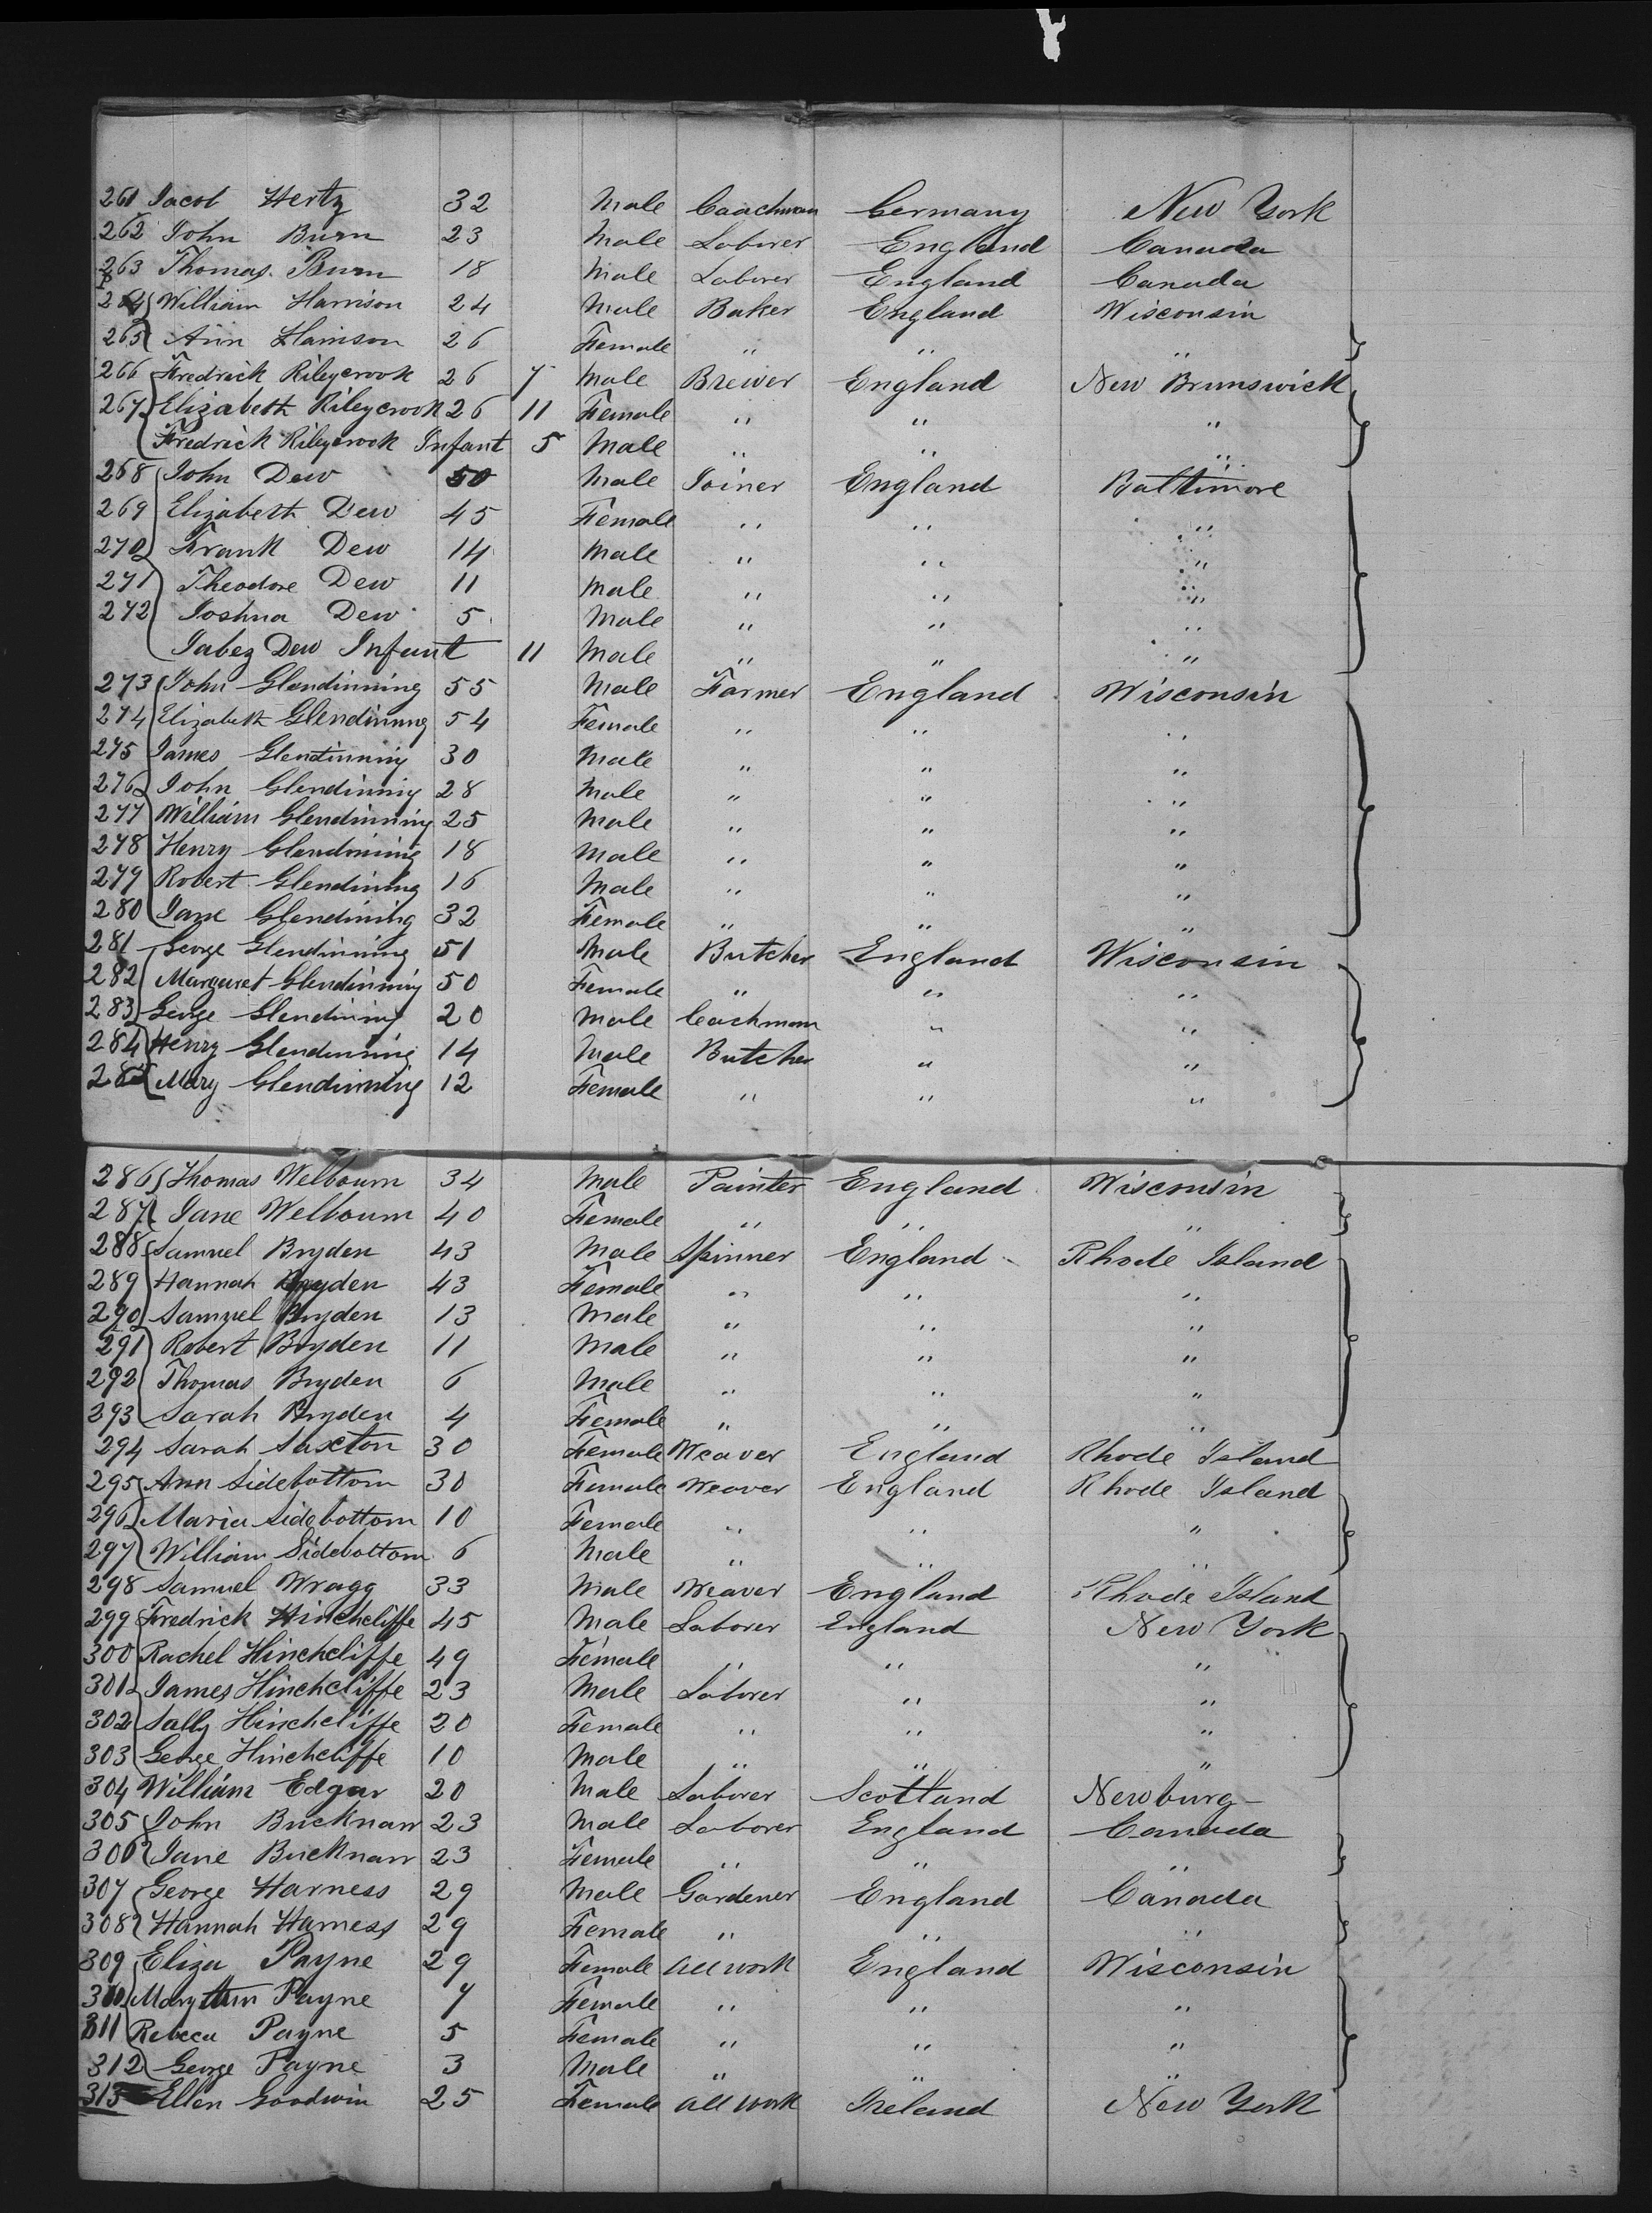 261 Jacob Hertz 32 Male Coachman Germany New York
262 John Burn 23 Male Laborer England Canada
263 Thomas Burn 18 Male Laborer England Canada
264 William Harrison 24 Male Baker England Wisconsin
265 Ann Harrison 26 Female " " "
266 Fredrick Rileycrook 26 7 Male Brewer England New Brunswick
267 Elizabeth Rileycrook 26 11 Female " " "
Fredrick Rileycrook Infant 5 Male " " "
268 John Dew 50 Male Joiner England Baltimore
269 Elizabeth Dew 45 Female " " "
270 Frank Dew 14 Male " " "
271 Theodore Dew 11 Male " " "
272 Joshua Dew 5 Male " " "
Jabez Dew Infant 11 Male " " "
273 John Glendinning 55 Male Farmer England Wisconsin
274 Elizabeth Glendinning 54 Female " " "
275 James Glendinning 30 Male " " "
276 John Glendinning 28 Male " " "
277 William Glendinning 25 Male " " "
278 Henry Glendinning 18 Male " " "
279 Robert Glendinning 16 Male " " "
280 Jane Glendining 32 Female " " "
281 George Glendinning 51 Male Butcher England Wisconsin
282 Margaret Glendinning 50 Female " " "
283 George Glendining 20 Male Coachman " "
284 Henry Glendinning 14 Male Butcher " "
285 Mary Glendinning 12 Female " " "
286 Thomas Welbourn 34 Male Painter England Wisconsin
287 Jane Welbourn 40 Female " " "
288 Samuel Bryden 43 Male Spinner England Rhode Island
289 Hannah Bryden 43 Female " " "
290 Samuel Bryden 13 Male " " "
291 Robert Bryden 11 Male " " "
292 Thomas Bryden 6 Male " " "
293 Sarah Bryden 4 Female " " "
294 Sarah Saxton 30 Female Weaver England Rhode Island
295 Ann Sidebottom 30 Female Weaver England Rhode Island
296 Maria Sidebottom 10 Female " " "
297 William Sidebottom 6 Male " " "
298 Samuel Wragg 33 Male Weaver England Rhode Island
299 Fredrick Hinchcliffe 45 Male Laborer England New York
300 Rachel Hinchcliffe 49 Female " " "
301 James Hinchcliffe 23 Male Laborer " "
302 Sally Hinchcliffe 20 Female " " "
303 George Hinchcliffe 10 Male " " "
304 William Edgar 20 Male Laborer Scotland Newburg
305 John Bucknan 23 Male Laborer England Canada
306 Jane Bucknan 23 Female " " "
307 George Harness 29 Male Gardener England Canada
308 Hannah Harness 29 Female " " "
309 Eliza Payne 29 Female all work England Wisconsin
310 Mary Ann Payne 7 Female " " "
311 Rebeca Payne 5 Female " " "
312 George Payne 3 Male " " "
313 Ellen Goodwin 25 Female all work Ireland New York